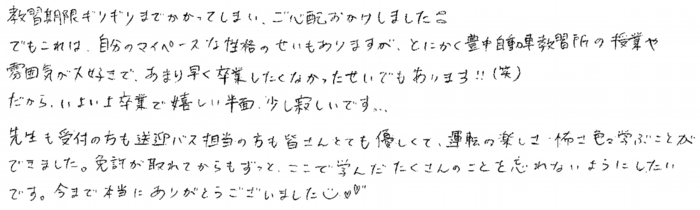 教習期限ギリギリまでかかってしまい、ご心配おかけしました
でもこれは、自分のマイペースな性格のせいもありますが、とにかく豊中自動車教習所の授業や
雰囲気が大好きで、あまり早く卒業したくなかったせいでもあります!!(笑)
だから、いよいよ卒業で嬉しい半面、少し寂しいです...
先生も受付の方も送迎バス担当の方も皆さんとても優しくて、運転の楽しさ・怖さ色々学ぶことが
できました。免許が取れてからもずっと、ここで学んだたくさんのことを忘れないようにしたい
です。今まで本当にありがとうございました